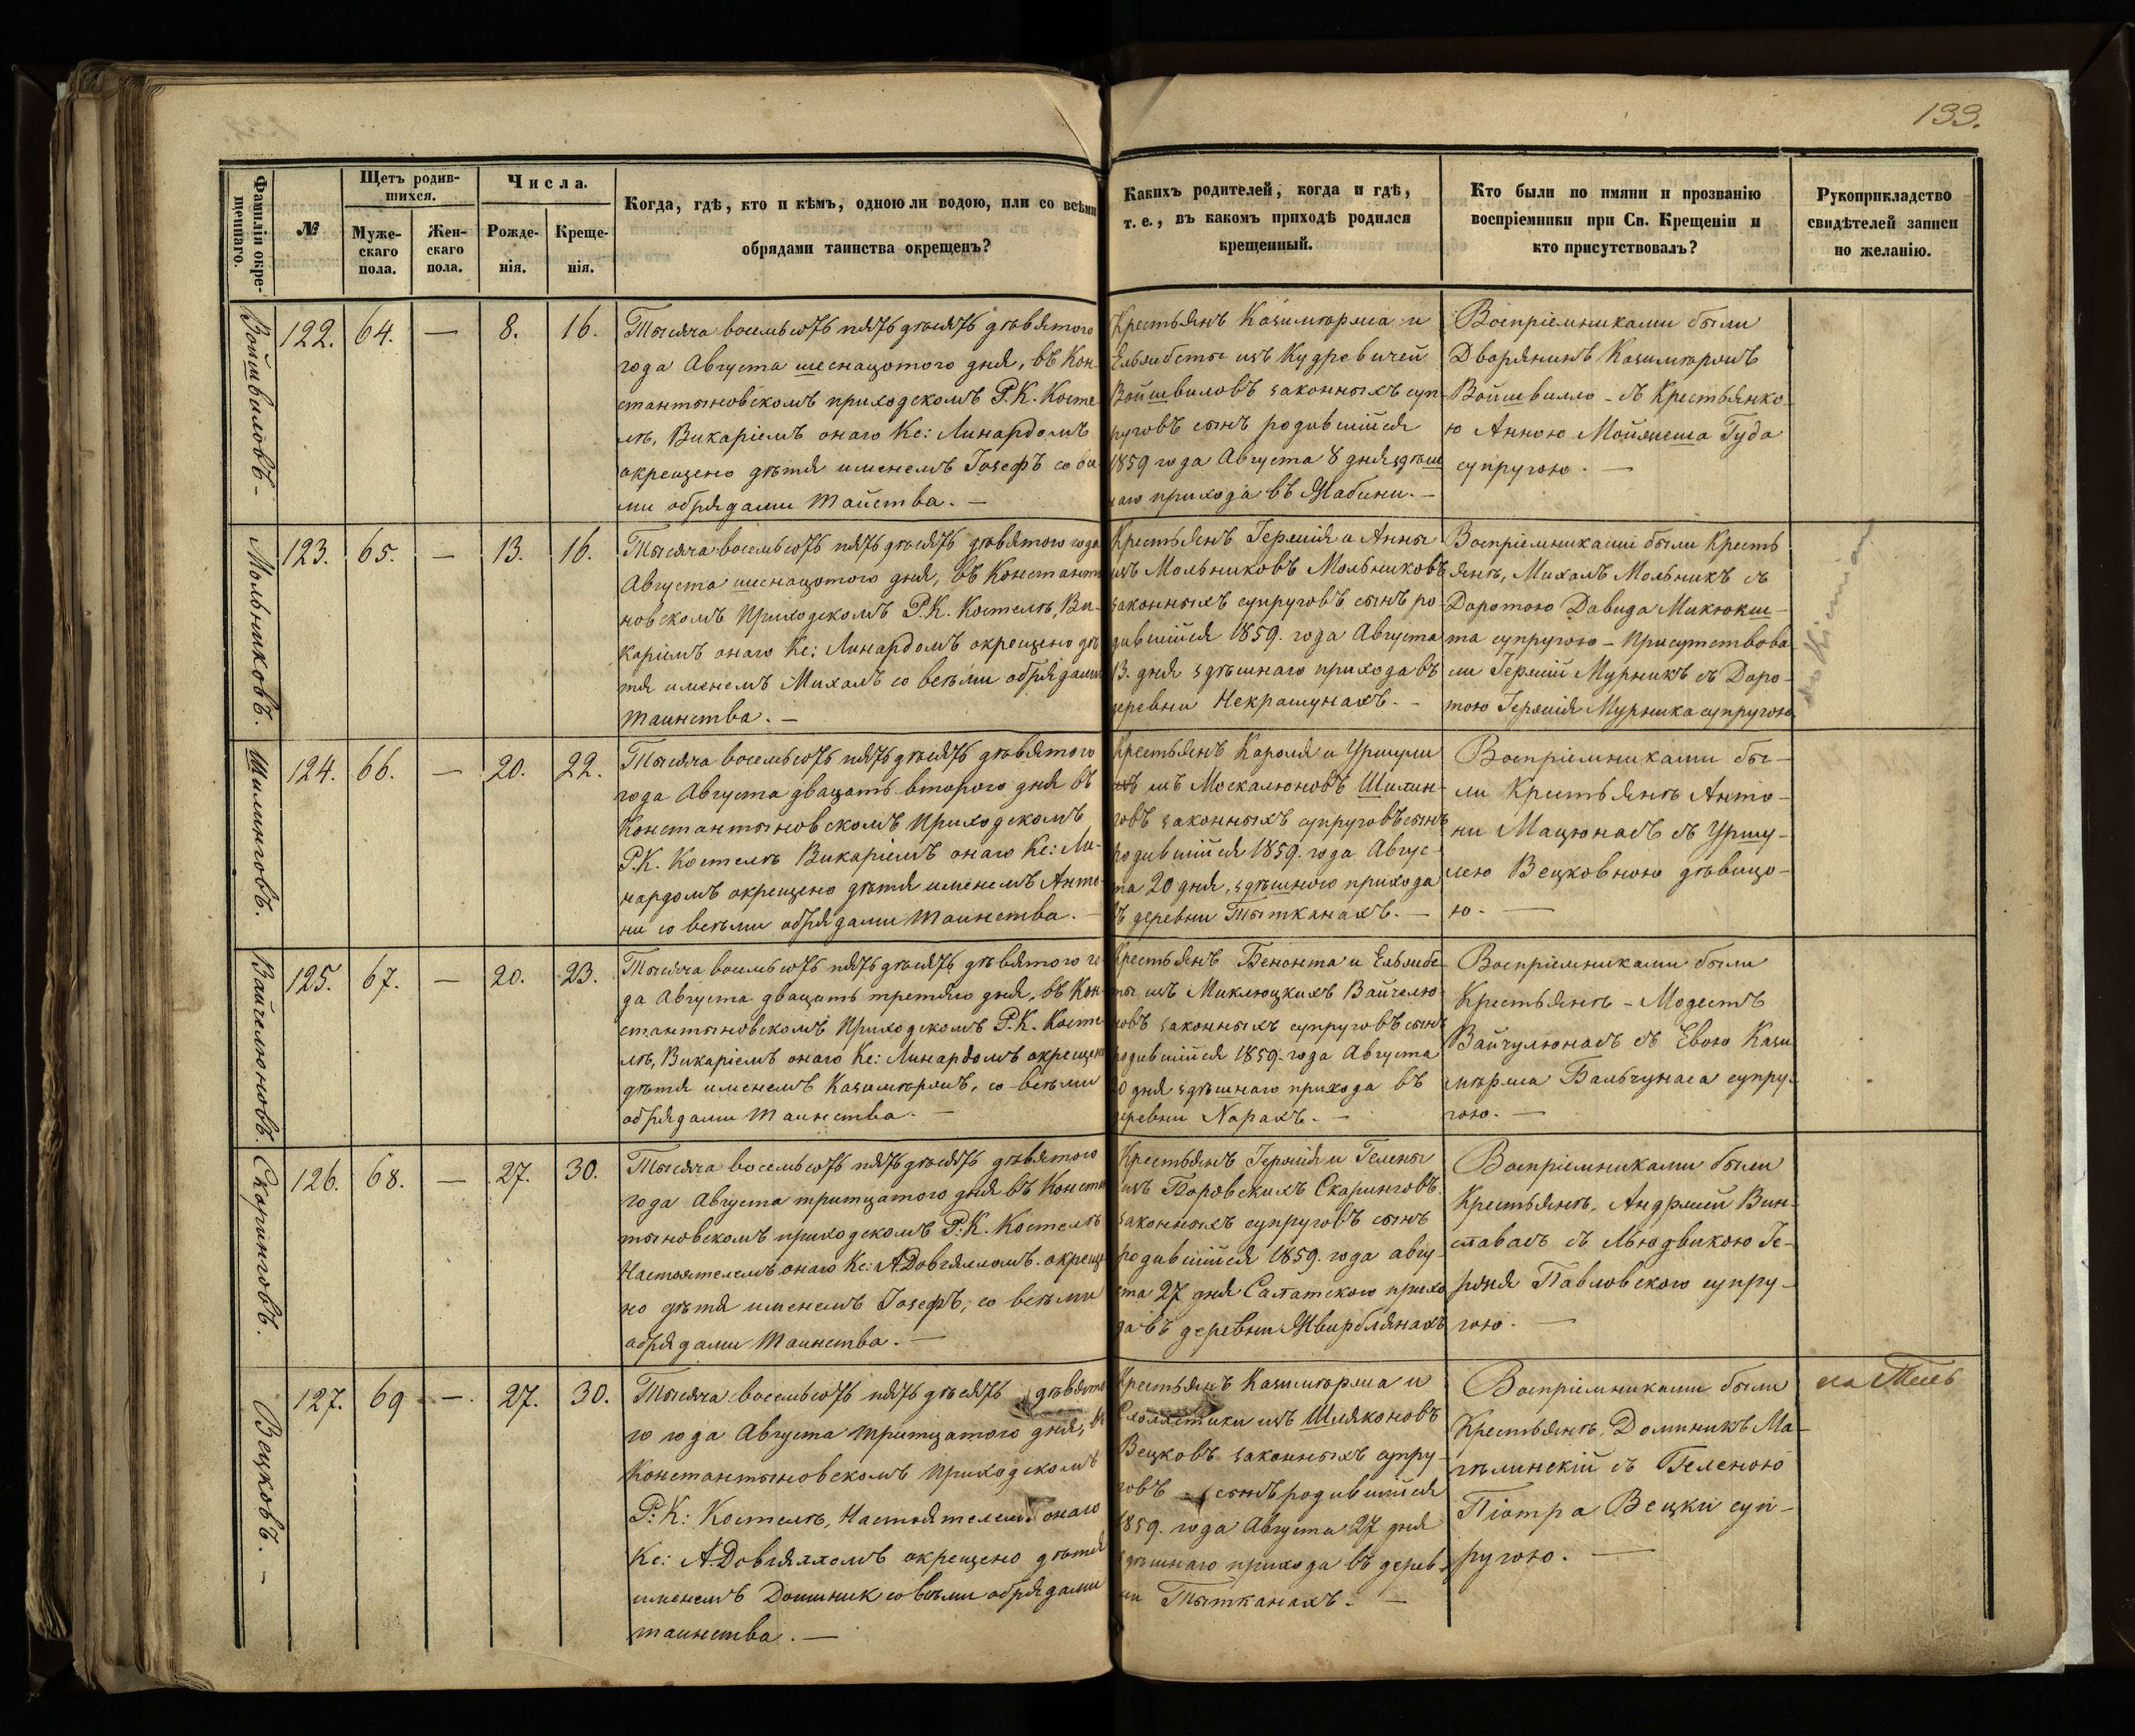 133.
Фамилiи окре-
щеннаго.
№
Щетъ родив-
шихся.
Муже-
скаго
пола.
Жен-
скаго
пола.
Числа.
Рожде-
нія.
Креще-
нія.
Когда, гдѣ, кто и кѣмъ, одною ли водою, или со всѣми
обрядами таинства окрещенъ?
Какихъ родителей, когда и гдѣ,
т. е., въ какомъ приходѣ родился
крещенный.
Кто были по имяни и прозванію
воспріемники при Св. Крещеніи и
кто присутствовалъ?
Рукоприкладство
свидѣтелей записи
по желанію.
Войшвиловъ-
122. 64. — 8. 16.
Тысяча восемьсотъ пятьдѣсятъ дѣвятого
года Августа шеснацотого дня, въ Кон-
стантыновскомъ приходскомъ Р.К. Косте
лѣ, Викаріемъ онаго Кс: Линардомъ
окрещено дѣтя именемъ Іозефъ со всѣ
ми обрядами Таиства. —
Крестьянъ Казимѣржа и
Ельзбеты изъ Кудревичей
Войшвиловъ законныхъ суп-
руговъ сынъ родившійся
1859 года Августа 8 дня здѣш
наго прихода въ Жабини. —
Воспріемниками были
Дворянинъ Казимѣржъ
Войшвилло - съ Крестьянко-
ю Анною Мойжеша Гуда
супругою. —
Мольниковъ.
123. 65. — 13. 16.
Тысяча восемьсотъ пятьдѣсятъ дѣвятого года
Августа шеснацотого дня, въ Констант
новскомъ Приходскомъ Р.К. Костелѣ, Ви-
каріемъ онаго Кс: Линардомъ окрещено дѣ
тя именемъ Михалъ со всѣми обрядами
таинства. —
Крестьянъ Гержія и Анны
изъ Мольниковъ Мольниковъ
законныхъ супруговъ сынъ ро-
дившійся 1859. года Августа
13. дня здѣшнаго прихода въ
деревни Некрашунахъ. -
Воспріемниками были Кресть
янѣ, Михалъ Мольникъ съ
Доротою Давида Микюкш-
та супругою - Присутствова
ли Гержій Мурникъ съ Доро-
тою Гержія Мурника супругою
Шилинговъ.
124. 66. — 20. 22.
Тысяча восемьсотъ пятьдѣсятъ дѣвятого
года Августа двацать второго дня въ
Константыновскомъ Приходскомъ
Р.К. Костелѣ Викаріемъ онаго Кс: Ли-
нардомъ окрещено дѣтя именемъ Анто-
ни со всѣми обрядами Таинства. —
Крестьянъ Кароля и Уршули
изъ Москалюновъ Шилин-
говъ законныхъ супруговъ сынъ
родившійся 1859. года Авгус-
та 20 дня, здѣшного прихода
въ деревни Тытканахъ. —
Воспріемниками бы-
ли Крестьянѣ Анто-
ни Мацюнасъ съ Уршу-
лею Вецковною дѣвицо-
ю. —
Вайчелюновъ.
125. 67. — 20. 23.
Тысяча восемьсотъ пятьдѣсятъ дѣвятого го
да Августа двацать третяго дня, въ Кон-
стантыновскомъ Приходскомъ Р.К. Косте
лѣ, Викаріемъ онаго Кс: Линардомъ окрещено
дѣтя именемъ Казимѣржъ, со всѣми
обрядами Таинства. —
Крестьянъ Бенонта и Ельзбе-
ты изъ Миклюцкихъ Вайчелю-
новъ законныхъ супруговъ сынъ
родившійся 1859. года Августа
20 дня здѣшнаго прихода въ
деревни Норахъ. —
Воспріемниками были
Крестьянѣ - Модестъ
Вайчулюнасъ съ Евою Кази
мѣржа Бальчунаса супру-
гою. —
Скоринговъ.
126. 68. — 27. 30.
Тысяча восемьсотъ пятьдѣсятъ дѣвятого
года Августа тритцатого дня въ Конста
тыновскомъ приходскомъ Р:К. Костелѣ
Настоятелемъ онаго Кс: А.Довгялломъ окреще
но дѣтя именемъ Іозефъ, со всѣми
обрядами Таинства. —
Крестьянъ Гержія и Гелены
изъ Боровскихъ Скаринговъ
законныхъ супруговъ сынъ
родившійся 1859. года авгу-
ста 27 дня Салатского прихо
да въ деревни Жвирблянахъ
Воспріемниками были
Крестьянѣ, Андржей Вин-
ставасъ съ Людвикою Ге-
ржія Павловского супру-
гою. —
Вецковъ. -
127. 69 — 27. 30.
Тысяча восемьсотъ пятьдѣсятъ дѣвято
го года Августа тритцатого дня, въ
Константыновскомъ Приходскомъ
Р: К: Костелѣ, Настоятелемъ онаго
Кс: А.Довгялломъ окрещено дѣтя
именемъ Доминик со всѣми обрядами
таинства. —
Крестьянъ Казимѣржа и
Схолястики изъ Шляконовъ
Вецковъ законныхъ супру-
говъ сынъ родившійся
1859. года Августа 27 дня
здѣшнаго прихода въ дерев-
ни Тытканахъ. —
Воспріемниками были
Крестьянѣ, Доминикъ Ма-
гѣлинскій съ Геленою
Піотра Вецки суп-
ругою. —